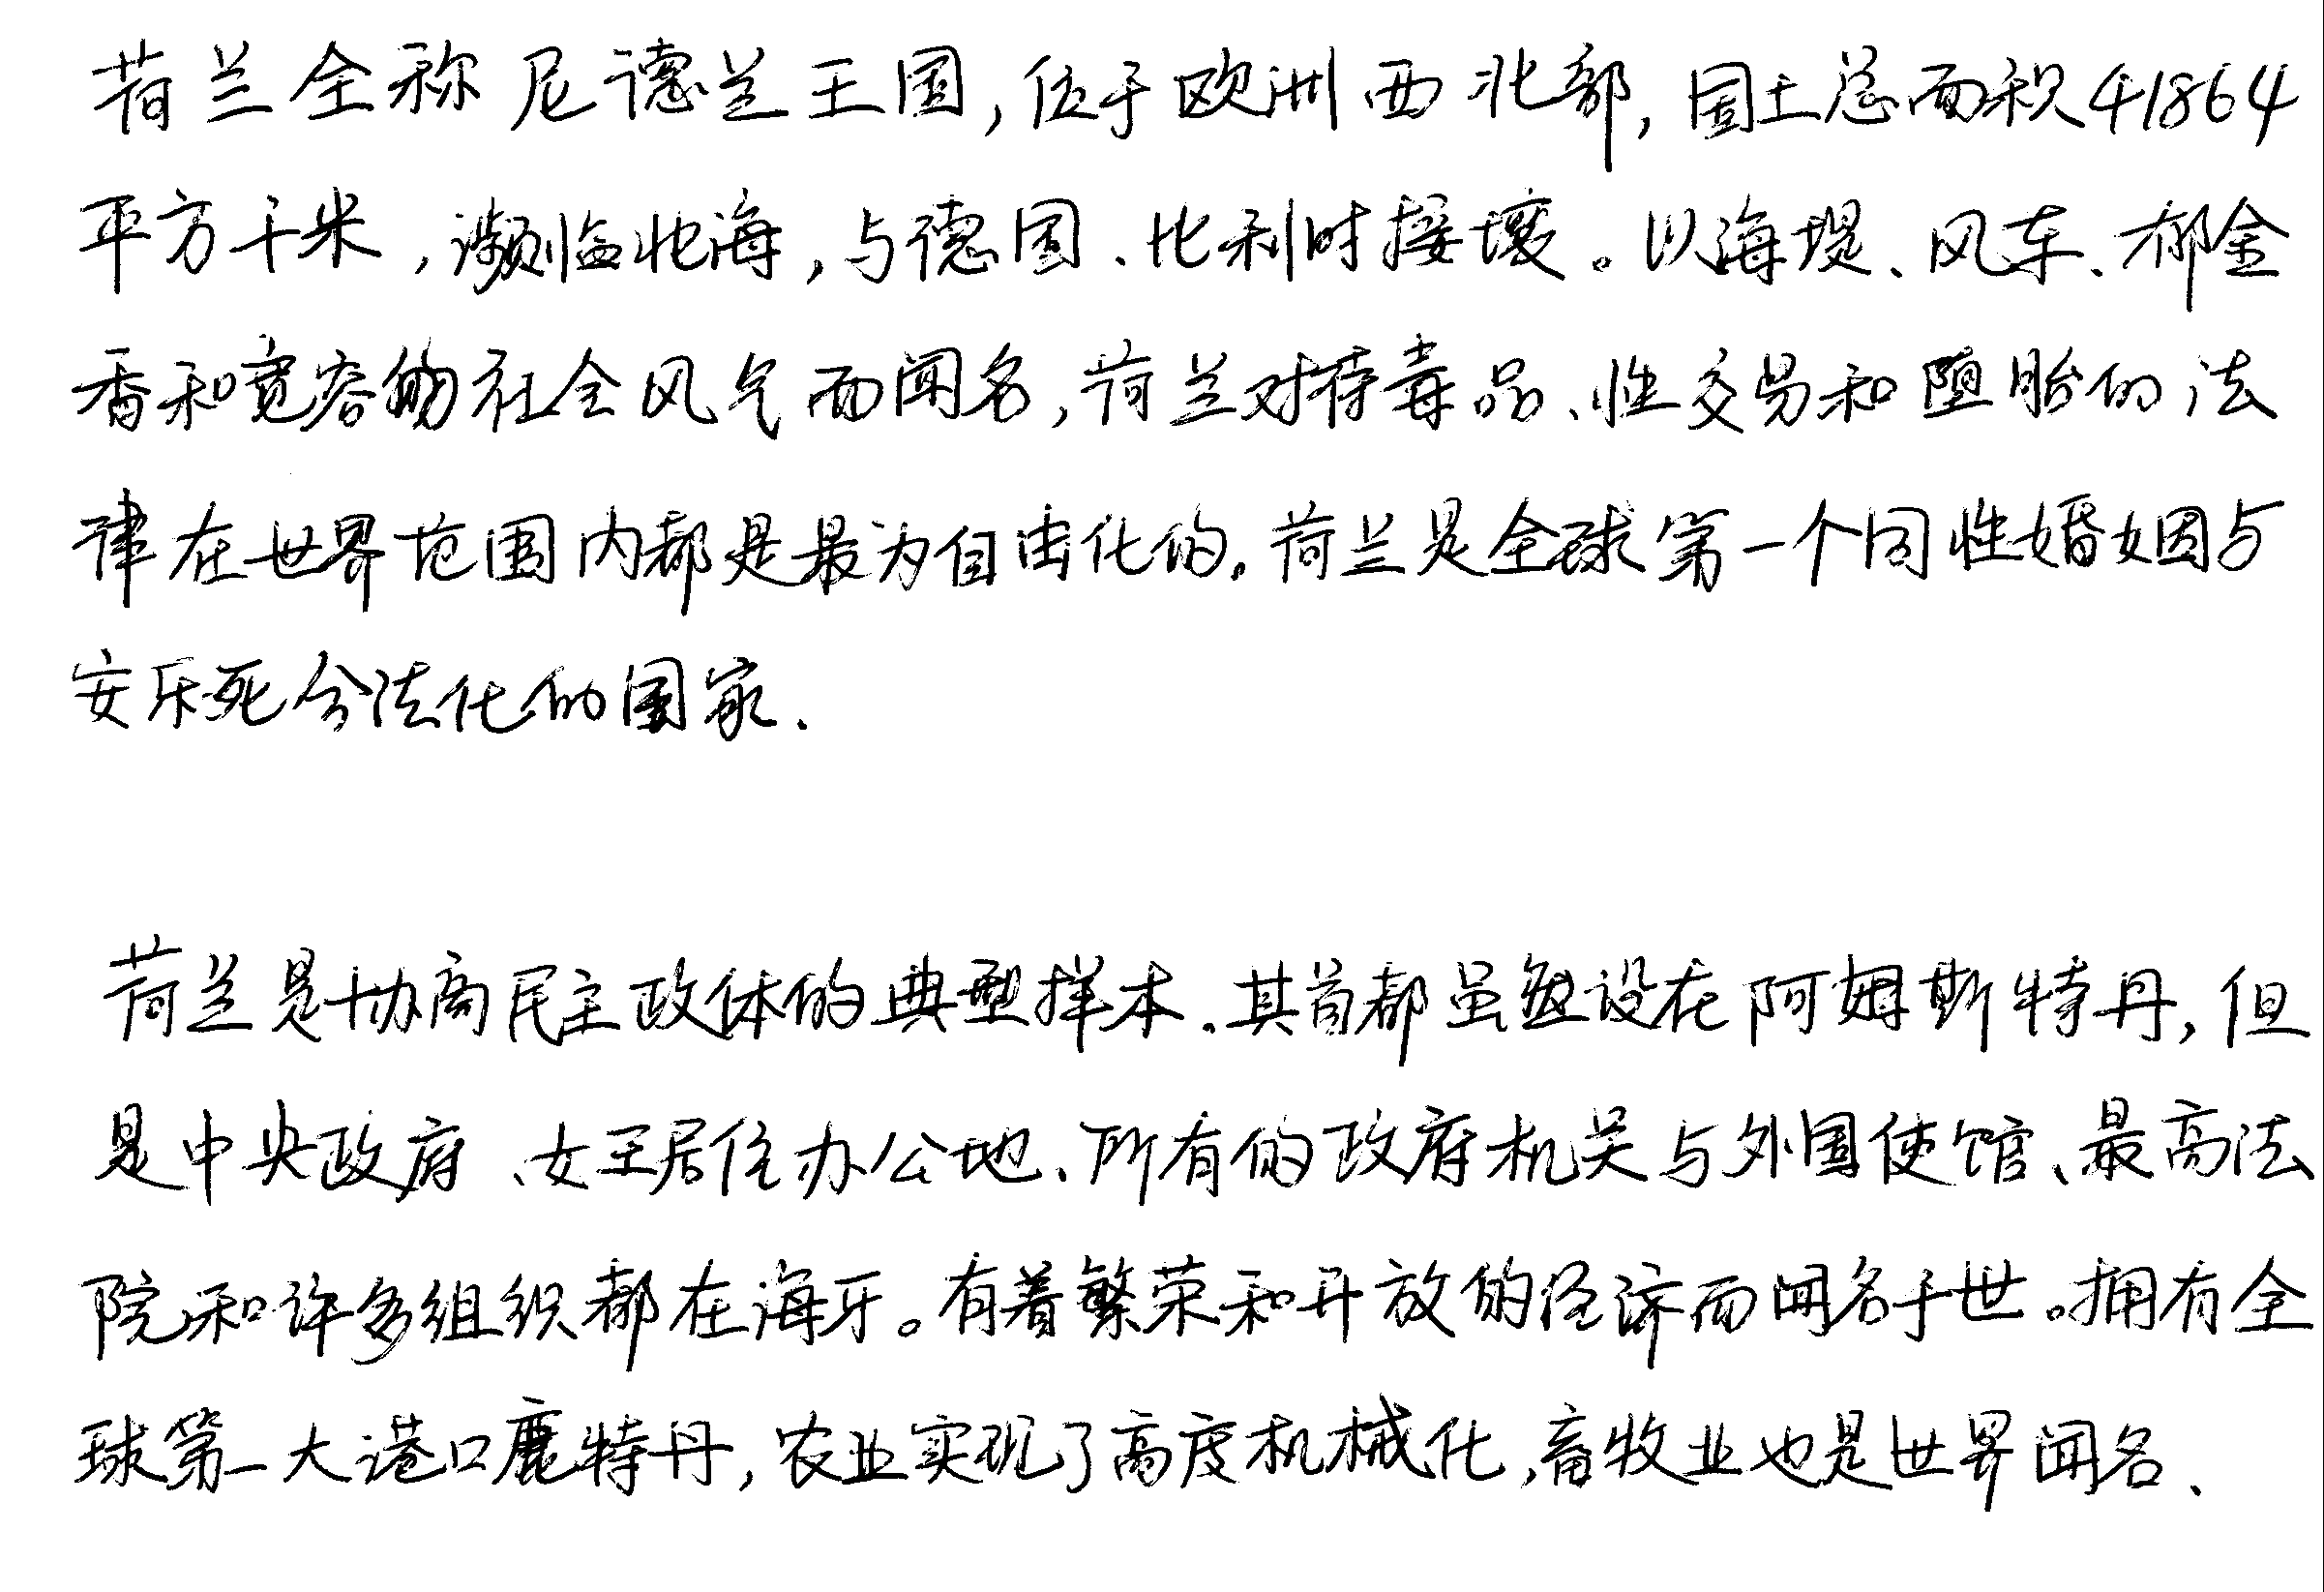 荷兰全称尼德兰王国,位于欧洲西北部,国土总面积41864
平方千米,濒临北海,与德国、比利时接壤。以海堤、风车、郁金
香和宽容的社会风气而闻名,荷兰对待毒品、性交易和堕胎的法
律在世界范围内都是最为自由化的。荷兰是全球第一个同性婚姻与
安乐死合法化的国家.

荷兰是协商民主政体的典型样本.其首都虽然设在阿姆斯特丹,但
是中央政府、女王居住办公地、所有的政府机关与外国使馆、最高法
院和许多组织都在海牙。有着繁荣和开放的经济而闻名于世。拥有全
球第一大港口鹿特丹,农业实现了高度机械化,畜牧业也是世界闻名.